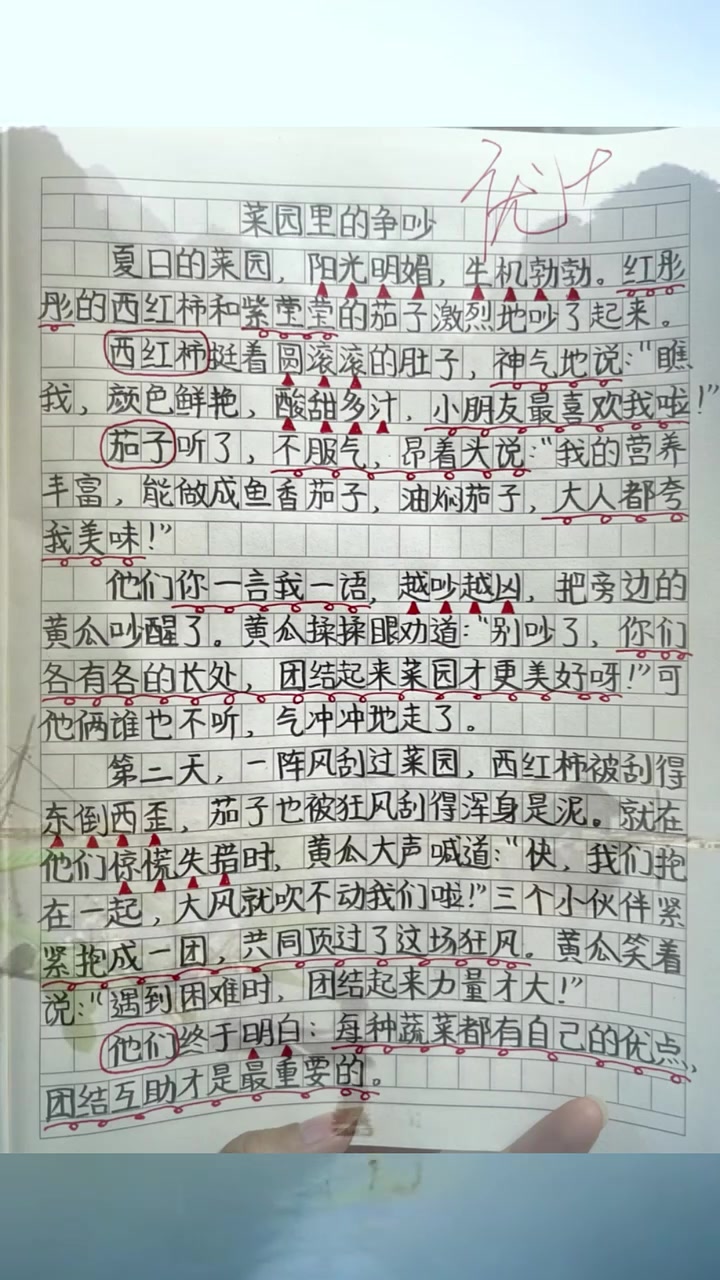 优+
菜园里的争吵
夏日的菜园，阳光明媚，生机勃勃。红彤
彤的西红柿和紫莹莹的茄子激烈地吵了起来。
西红柿挺着圆滚滚的肚子，神气地说：“瞧
我，颜色鲜艳，酸甜多汁，小朋友最喜欢我啦！”
茄子听了，不服气，昂着头说：“我的营养
丰富，能做成鱼香茄子，油焖茄子，大人都夸
我美味！”
他们你一言我一语，越吵越凶，把旁边的
黄瓜吵醒了。黄瓜揉揉眼劝道：“别吵了，你们
各有各的长处，团结起来菜园才更美好呀！”可
他俩谁也不听，气冲冲地走了。
第二天，一阵风刮过菜园，西红柿被刮得
东倒西歪，茄子也被狂风刮得浑身是泥。就在
他们惊慌失措时，黄瓜大声喊道：“快，我们抱
在一起，大风就吹不动我们啦！”三个小伙伴紧
紧抱成一团，共同顶过了这场狂风。黄瓜笑着
说：“遇到困难时，团结起来力量才大！”
他们终于明白：每种蔬菜都有自己的优点，
团结互助才是最重要的。